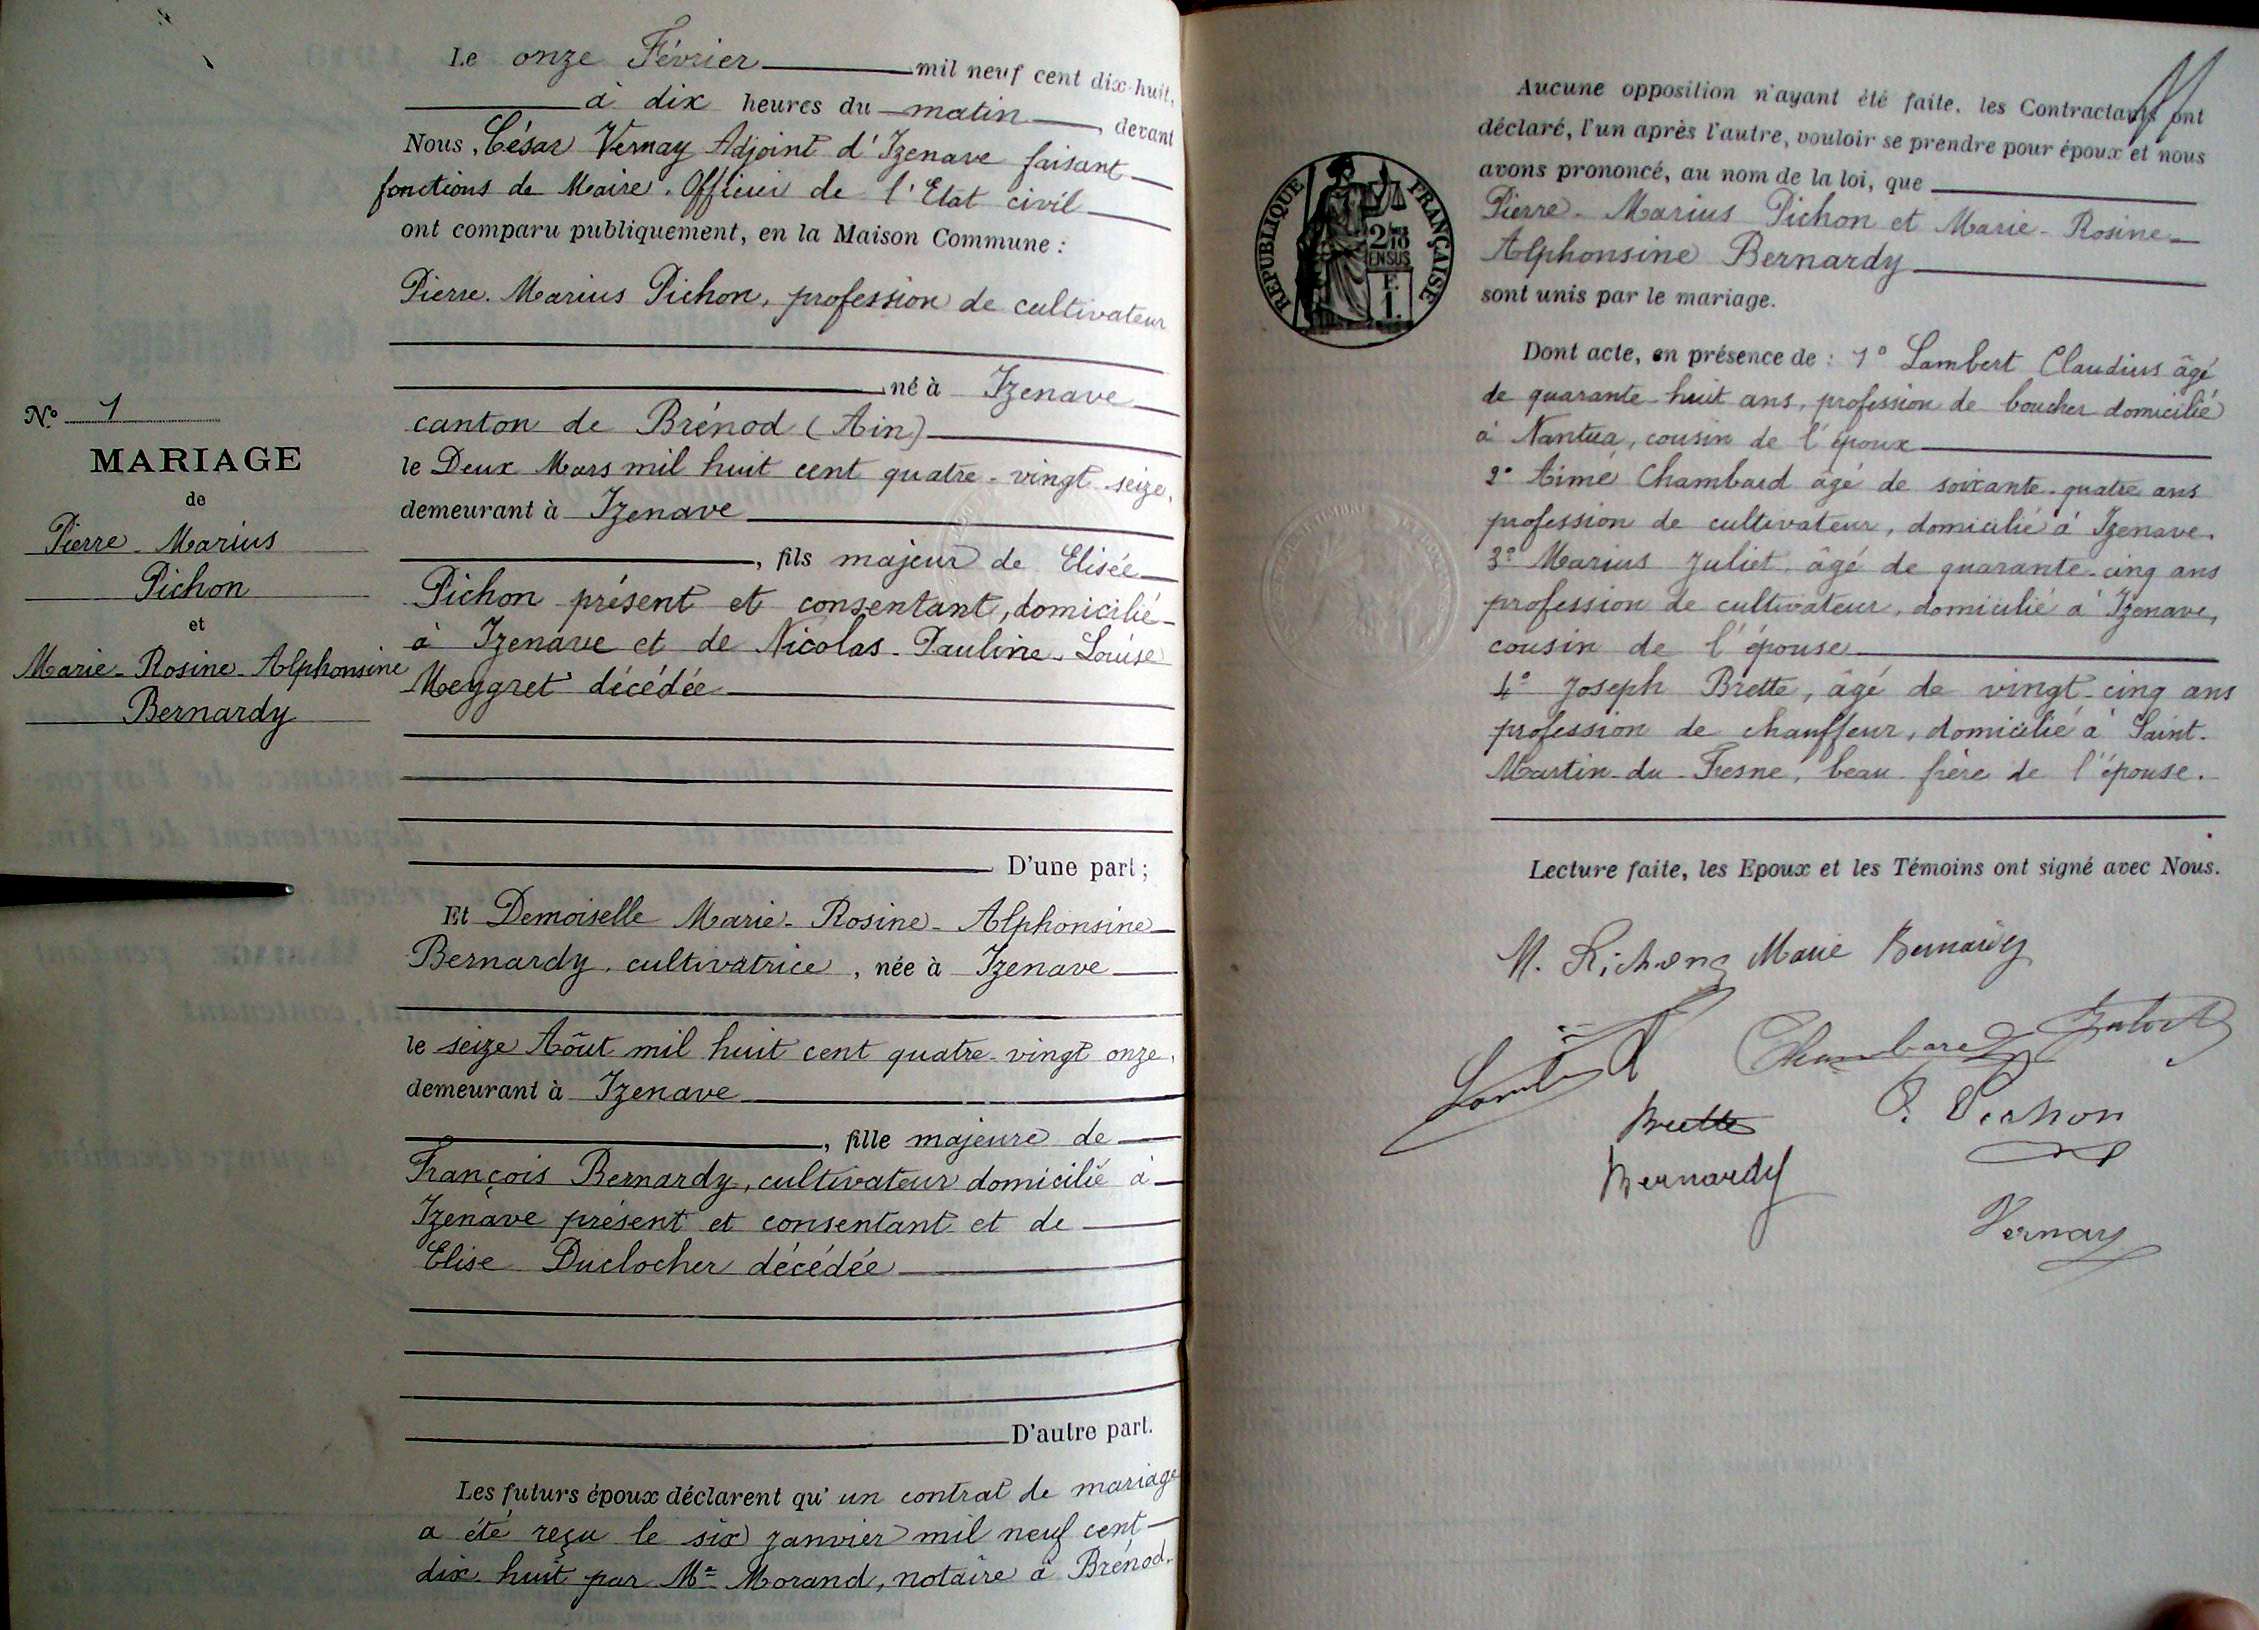 N° 1
MARIAGE
de
Pierre-Marius
Pichon
et
Marie-Rosine-Alphonsine
Bernardy
Le onze Février mil neuf cent dix-huit,
à dix heures du matin, devant
Nous, César Vernay Adjoint d'Izenave faisant
fonctions de Maire. Officier de l'Etat civil
ont comparu publiquement, en la Maison Commune :
Pierre-Marius Pichon, profession de cultivateur
né à Izenave
canton de Brénod (Ain)
le Deux Mars mil huit cent quatre-vingt-seize,
demeurant à Izenave
, fils majeur de Elisée
Pichon présent et consentant, domicilié
à Izenave et de Nicolas-Pauline-Louise
Meygret décédée
D'une part ;
Et Demoiselle Marie-Rosine-Alphonsine
Bernardy, cultivatrice, née à Izenave
le seize Août mil huit cent quatre-vingt onze,
demeurant à Izenave
, fille majeure de
François Bernardy, cultivateur domicilié à
Izenave présent et consentant et de
Elise Duclocher décédée
D'autre part.
Les futurs époux déclarent qu'un contrat de mariage
a été reçu le six janvier mil neuf cent
dix huit par Me Morand, notaire à Brénod.
Aucune opposition n'ayant été faite, les Contractants ont
déclaré, l'un après l'autre, vouloir se prendre pour époux et nous
avons prononcé, au nom de la loi, que
Pierre-Marius Pichon et Marie-Rosine
Alphonsine Bernardy
sont unis par le mariage.
REPUBLIQUE FRANÇAISE
Dont acte, en présence de : 1° Lambert Claudius âgé
de quarante-huit ans, profession de boucher domicilié
à Nantua, cousin de l'époux
2° Aimé Chambard âgé de soixante-quatre ans
profession de cultivateur, domicilié à Izenave.
3° Marius Juliet âgé de quarante-cinq ans
profession de cultivateur, domicilié à Izenave,
cousin de l'épouse
4° Joseph Brette, âgé de vingt-cinq ans
profession de chauffeur, domicilié à Saint-
Martin-du-Fresne, beau-frère de l'épouse.
Lecture faite, les Epoux et les Témoins ont signé avec Nous.
M. Pichon Marie Bernardy
Lambert Chambard Juliet
Brette E. Pichon
Bernardy
Vernay